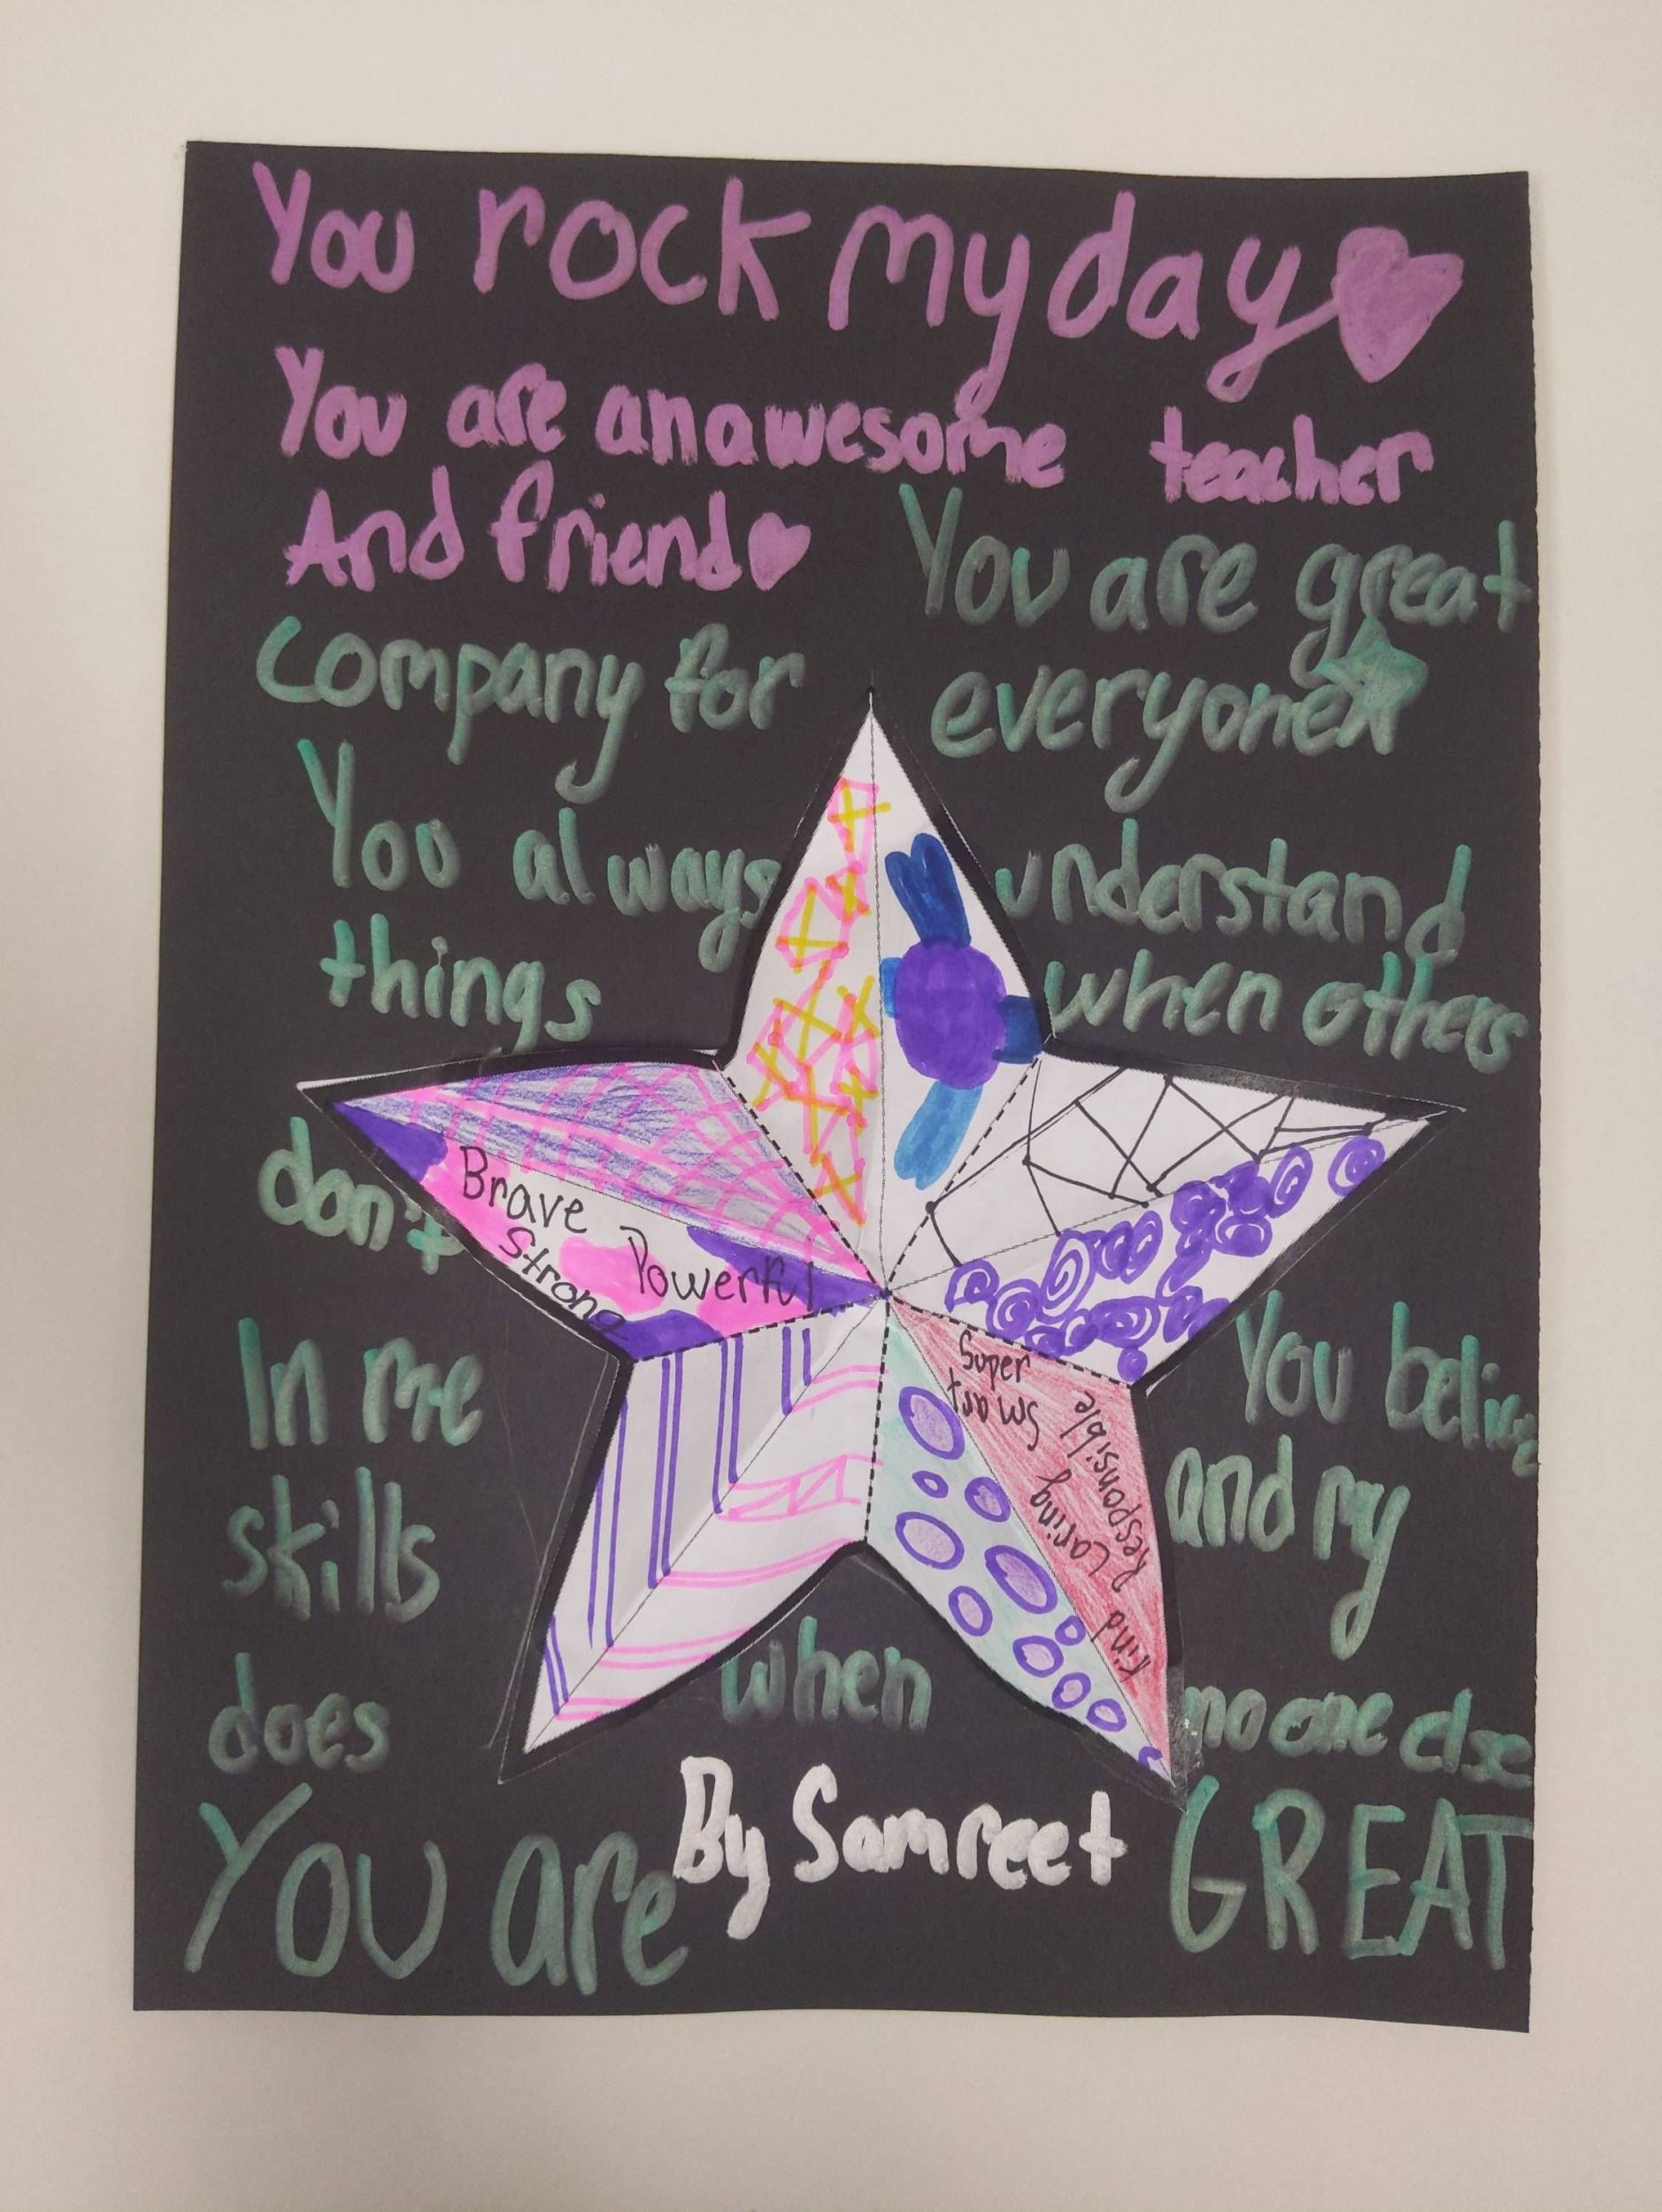 You rock my day
You are an awesome teacher
And friend
You are great
company for everyone
You always understand
things when others
don't
You believe
In me and my
skills
when no one else
does
You are GREAT
By Samreet
Brave
Strong
Powerful
Super
Smart
Responsible
Caring
Kind